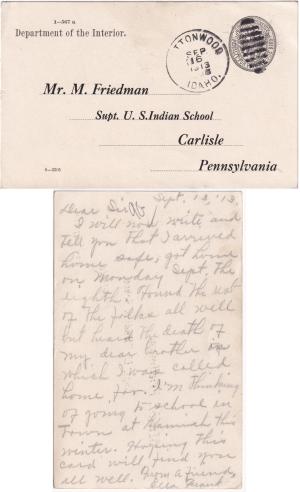 1-567 a
Department of the Interior.
TTONWOOD
SEP
16
1913
IDAHO.
Mr. M. Friedman
Supt. U. S. Indian School
Carlisle
Pennsylvania
Sept. 13, '13.
Dear Sir
I will now write and
tell you that I arrived
home safe; got home
on Monday Sept. the
eighth. Found the rest
of the folks all well
but heard the death of
my dear brother in
which I was called
home for. I'm thinking
of going to school in
town at Kamiah this
winter. Hoping this
card will find you
all well. From a friend,
Ella Frank